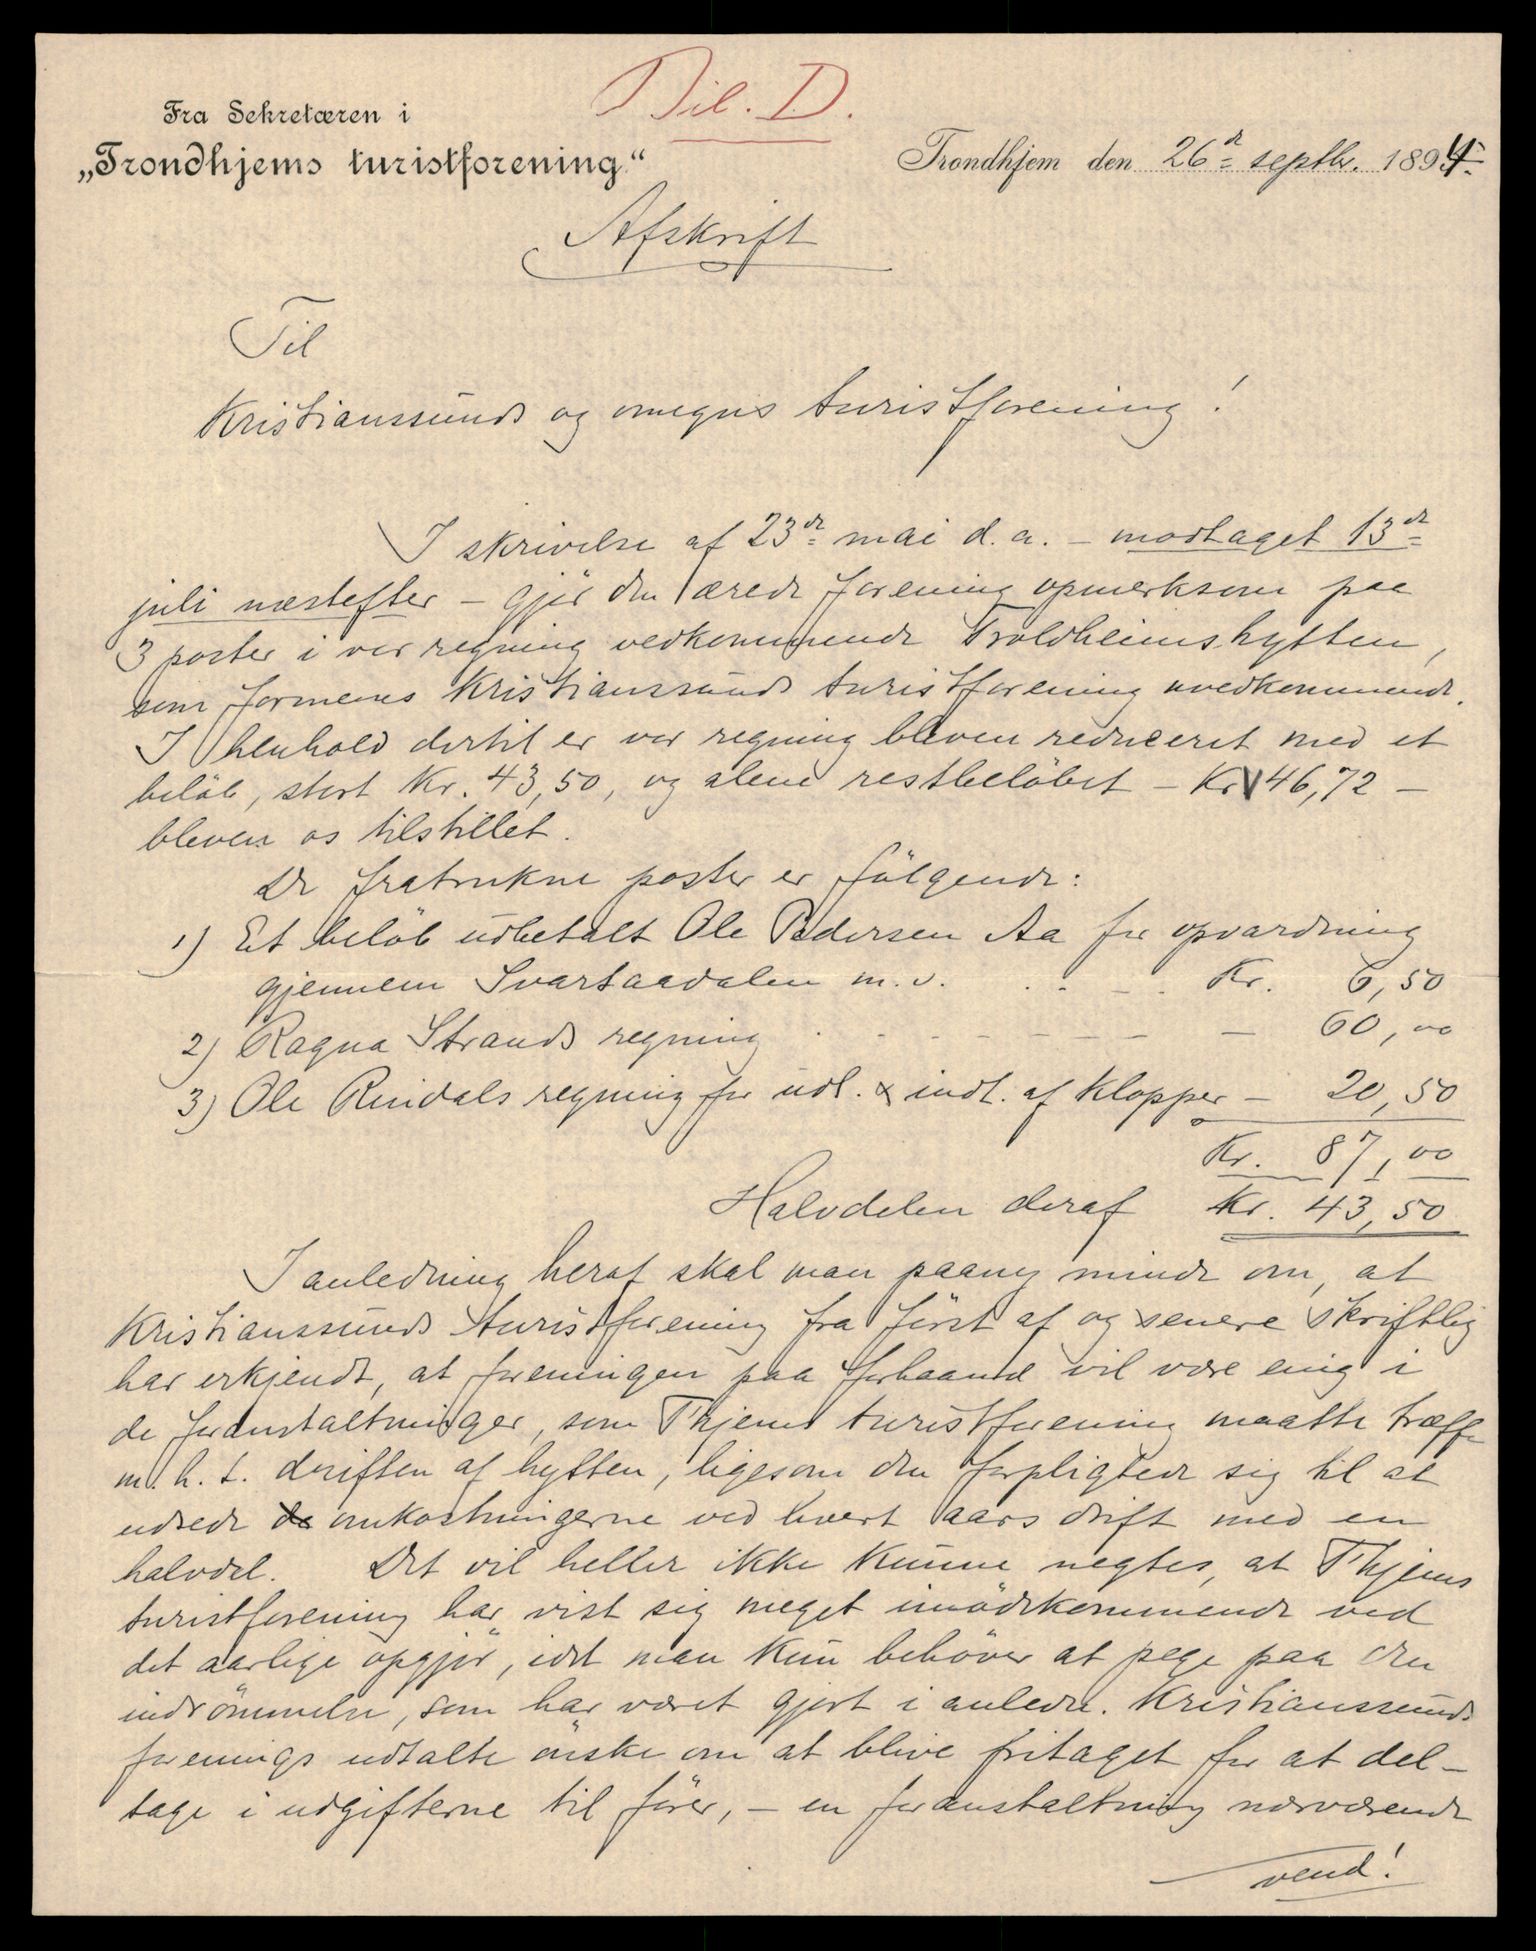 Bil. D.
Fra Sekretæren i
„Trondhjems turistforening“
Trondhjem den 26de septbr. 1894.
Afskrift
Til
Kristianssunds og omegns turistforening!
I skrivelse af 23de mai d. a. – modtaget 13de
juli næstefter – gjör den ærede forening opmerksom paa
3 poster i vor regning vedkommende Troldheimshytten,
som formenes Kristianssunds turistforening uvedkommende.
I henhold dertil er vor regning bleven reduceret med et
belöb, stort Kr. 43,50, og alene restbelöbet – Kr. 146,72 –
bleven os tilstillet.
De fratrukne poster er fölgende:
1) Et belöb udbetalt Ole Pedersen Aa for opvardning
gjennem Svartaadalen m. v. Kr. 6,50
2) Ragna Strands regning – 60,00
3) Ole Rindals regning for udl. & indl. af klopper – 20,50
Kr. 87,00
Halvdelen deraf Kr. 43,50
I anledning heraf skal man paany minde om, at
Kristianssunds turistforening fra först af og senere skriftlig
har erkjendt, at foreningen paa forhaand vil være enig i
de foranstaltninger, som Thjems turistforening maatte træffe
m. h. t. driften af hytten, ligesom den forpligtede sig til at
udrede de omkostningerne ved hvert aars drift med en
halvdel. Det vil heller ikke kunne negtes, at Thjems
turistforening har vist sig meget imödekommende ved
det aarlige opgjör, idet man kun behöver at pege paa den
indrömmelse, som har været gjort i anledn. Kristianssunds
forenings udtalte önske om at blive fritaget for at del-
tage i udgifterne til förer, – en foranstaltning nærværende
vend!